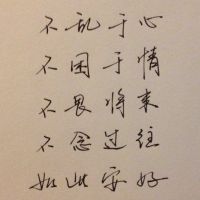 不乱于心
不困于情
不畏将来
不念过往
如此安好